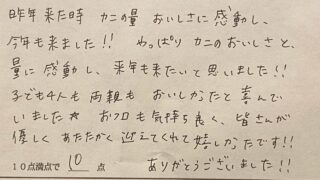 昨年来た時 カニの量 おいしさに感動し、
今年も来ました!! やっぱり カニのおいしさと、
量に感動し、来年も来たいと思いました!!
子ども4人も 両親も おいしかったと喜んで
いました☆ お風呂も気持ち良く、皆さんが
優しく あたたかく 迎えてくれて嬉しかったです!!
10点満点で 10 点 ありがとうございました!!